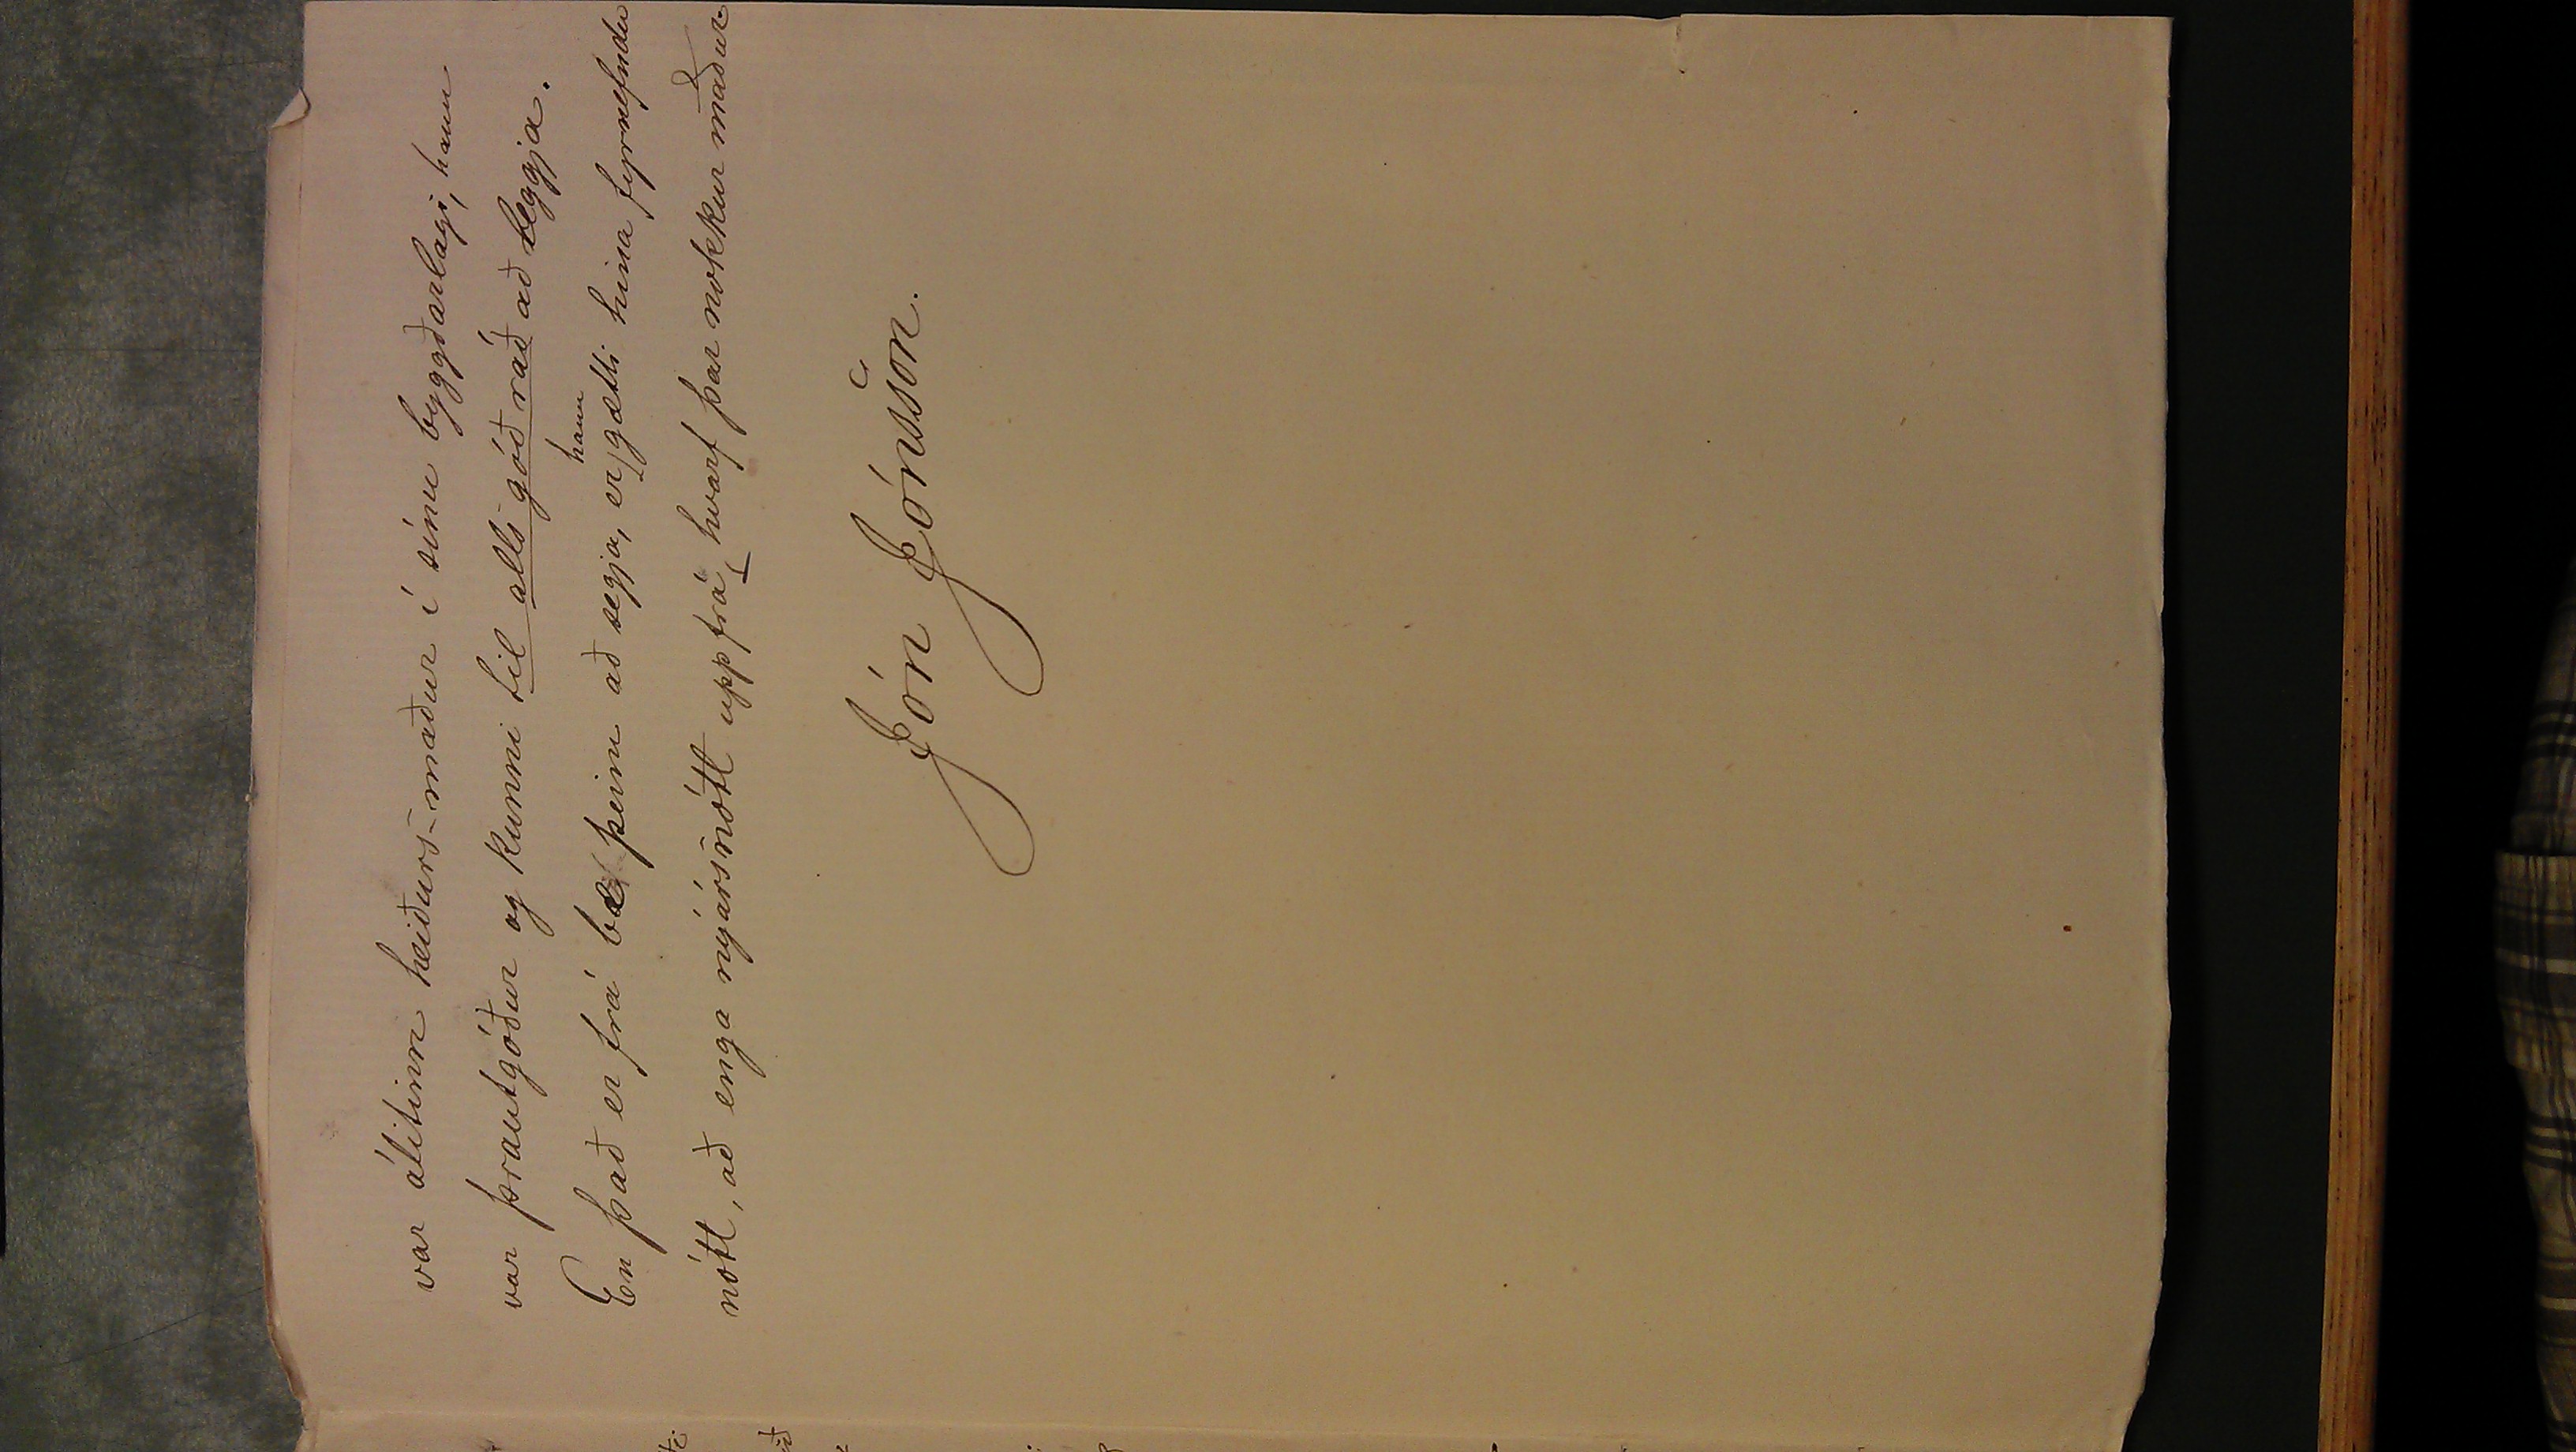 var álitinn heiðurs-maður í sínu byggðarlagi, hann
var þrautgóður og kunni til alls góð ráð að leggja.
En það er frá bæ þeim að segja, er hann gætti hina fyrnefndu
nótt, að enga nýársnótt upp frá hvarf þar nokkur maður.
Jón Jónsson.